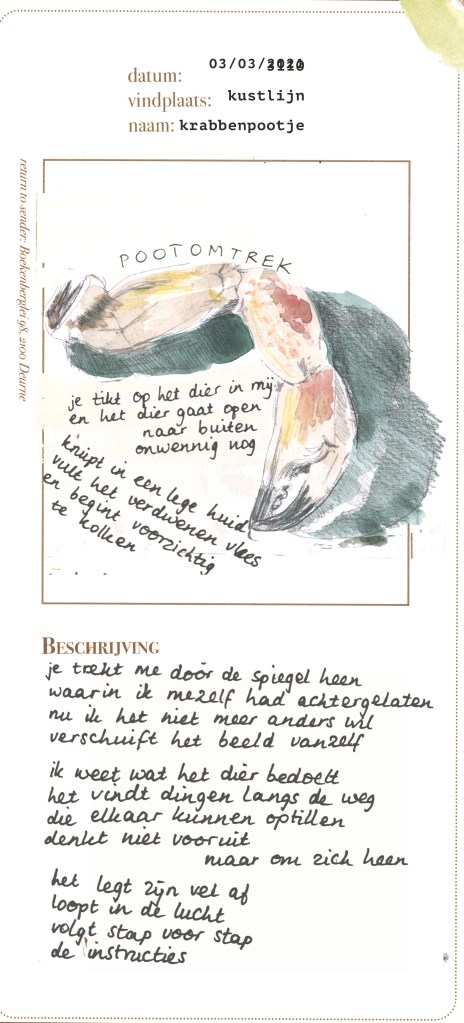 datum: 03/03/
vindplaats: kustlijn
naam: krabbenpootje
return to sender: Boekenberglei 98, 2100 Deurne
POOTOMTREK
je tikt op het dier in mij
en het dier gaat open
naar buiten
onwennig nog
knijpt in een lege huid
vult het verdwenen vlees
en begint voorzichtig
te kolken
BESCHRIJVING
je trekt me door de spiegel heen
waarin ik mezelf had achtergelaten
nu ik het niet meer anders wil
verschuift het beeld vanzelf
ik weet wat het dier bedoelt
het vindt dingen langs de weg
die elkaar kunnen optillen
denkt niet vooruit
maar om zich heen
het legt zijn vel af
loopt in de lucht
volgt stap voor stap
de instructies